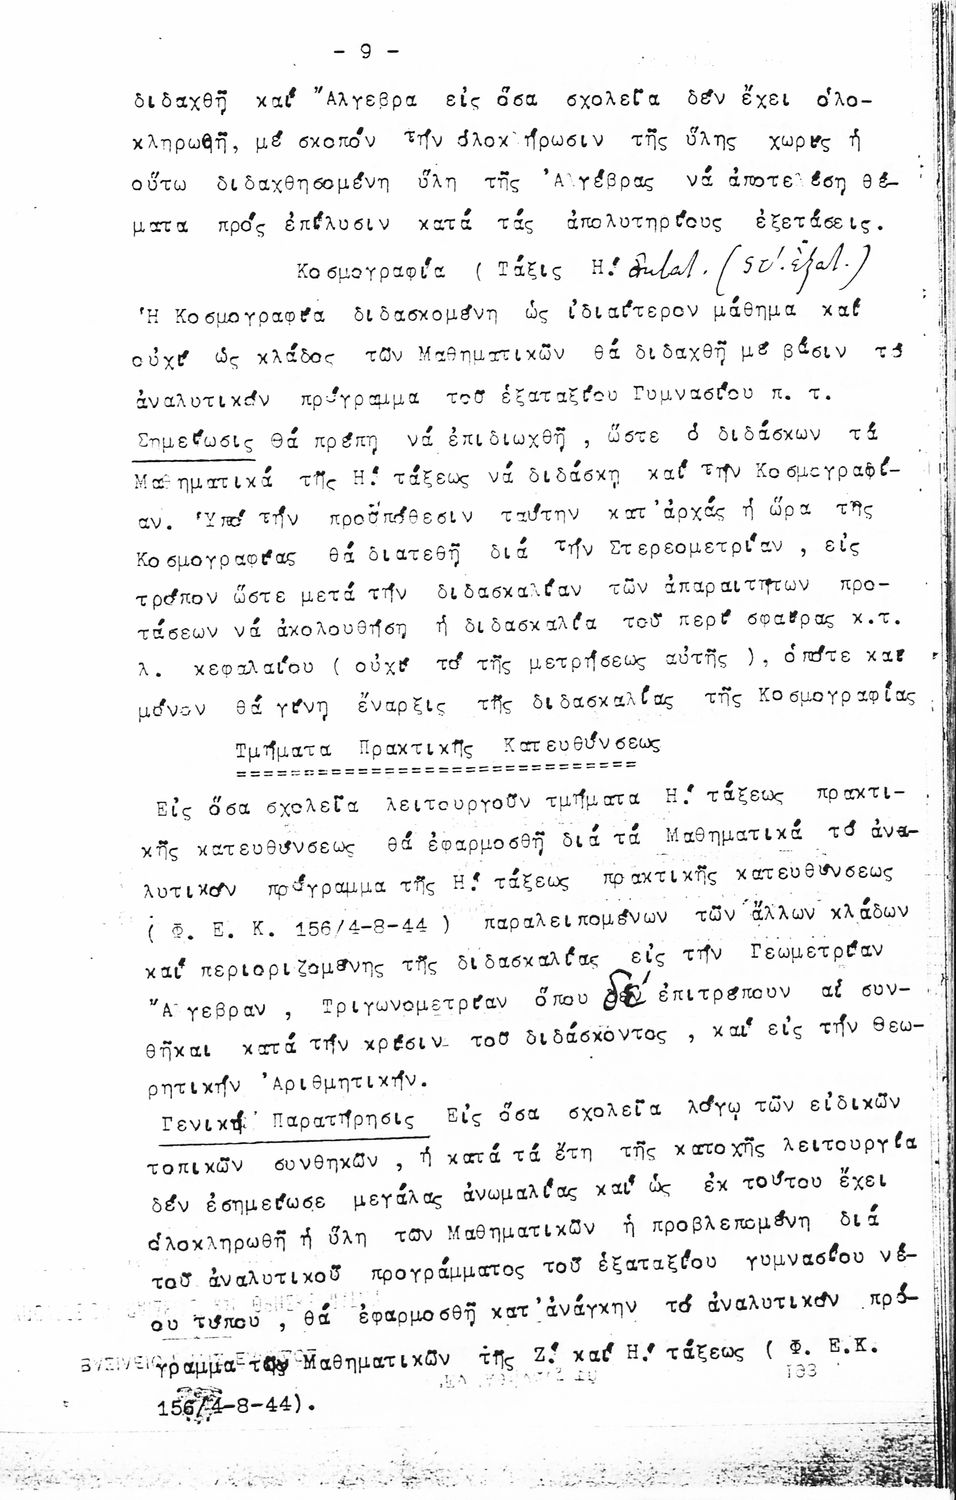 - 9 -
διδαχθῆ καί Ἄλγεβρα εἰς ὅσα σχολεῖα δέν ἔχει ὁλο-
κληρωθῆ, μέ σκοπόν τήν ὁλοκλήρωσιν τῆς ὕλης χωρίς ἡ
οὕτω διδαχθησομένη ὕλη τῆς Ἀλγέβρας νά ἀποτελέση θέ-
ματα πρός ἐπίλυσιν κατά τάς ἀπολυτηρίους ἐξετάσεις.
Κοσμογραφία ( Τάξις Η! (ΣΤ' ἑξατ.)
Ἡ Κοσμογραφία διδασκομένη ὡς ἰδιαίτερον μάθημα καί
οὐχί ὡς κλάδος τῶν Μαθηματικῶν θά διδαχθῆ μέ βάσιν τό
ἀναλυτικόν πρόγραμμα τοῦ ἑξαταξίου Γυμνασίου π. τ.
Σημείωσις Θά πρέπη νά ἐπιδιωχθῆ , ὥστε ὁ διδάσκων τά
Μαθηματικά τῆς Η! τάξεως νά διδάσκη καί τήν Κοσμογραφί-
αν. Ὑπό τήν προϋπόθεσιν ταύτην κατ'ἀρχάς ἡ ὥρα τῆς
Κοσμογραφίας θά διατεθῆ διά τήν Στερεομετρίαν , εἰς
τρόπον ὥστε μετά τήν διδασκαλίαν τῶν ἀπαραιτήτων προ-
τάσεων νά ἀκολουθήση ἡ διδασκαλία τοῦ περί σφαίρας κ.τ.
λ. κεφαλαίου ( οὐχί τό τῆς μετρήσεως αὐτῆς ), ὁπότε καί
μόνον θά γίνη ἔναρξις τῆς διδασκαλίας τῆς Κοσμογραφίας
Τμήματα Πρακτικῆς Κατευθύνσεως
==============================
Εἰς ὅσα σχολεῖα λειτουργοῦν τμήματα Η! τάξεως πρακτι-
κῆς κατευθύνσεως θά ἐφαρμοσθῆ διά τά Μαθηματικά τό ἀνα-
λυτικόν πρόγραμμα τῆς Η! τάξεως πρακτικῆς κατευθύνσεως
( Φ. Ε. Κ. 156/4-8-44 ) παραλειπομένων τῶν ἄλλων κλάδων
καί περιοριζομένης τῆς διδασκαλίας εἰς τήν Γεωμετρίαν
Ἄλγεβραν , Τριγωνομετρίαν ὅπου δέν ἐπιτρέπουν αἱ συν-
θῆκαι κατά τήν κρίσιν τοῦ διδάσκοντος , καί εἰς τήν Θεω-
ρητικήν Ἀριθμητικήν.
Γενική Παρατήρησις Εἰς ὅσα σχολεῖα λόγῳ τῶν εἰδικῶν
τοπικῶν συνθηκῶν , ἡ κατά τά ἔτη τῆς κατοχῆς λειτουργία
δέν ἐσημείωσε μεγάλας ἀνωμαλίας καί ὡς ἐκ τούτου ἔχει
ὁλοκληρωθῆ ἡ ὕλη τῶν Μαθηματικῶν ἡ προβλεπομένη διά
τοῦ ἀναλυτικοῦ προγράμματος τοῦ ἑξαταξίου γυμνασίου νέ-
ου τύπου , θά ἐφαρμοσθῆ κατ'ἀνάγκην τό ἀναλυτικόν πρό-
γραμμα τῶν Μαθηματικῶν τῆς Ζ! καί Η! τάξεως ( Φ. Ε.Κ.
156/4-8-44).